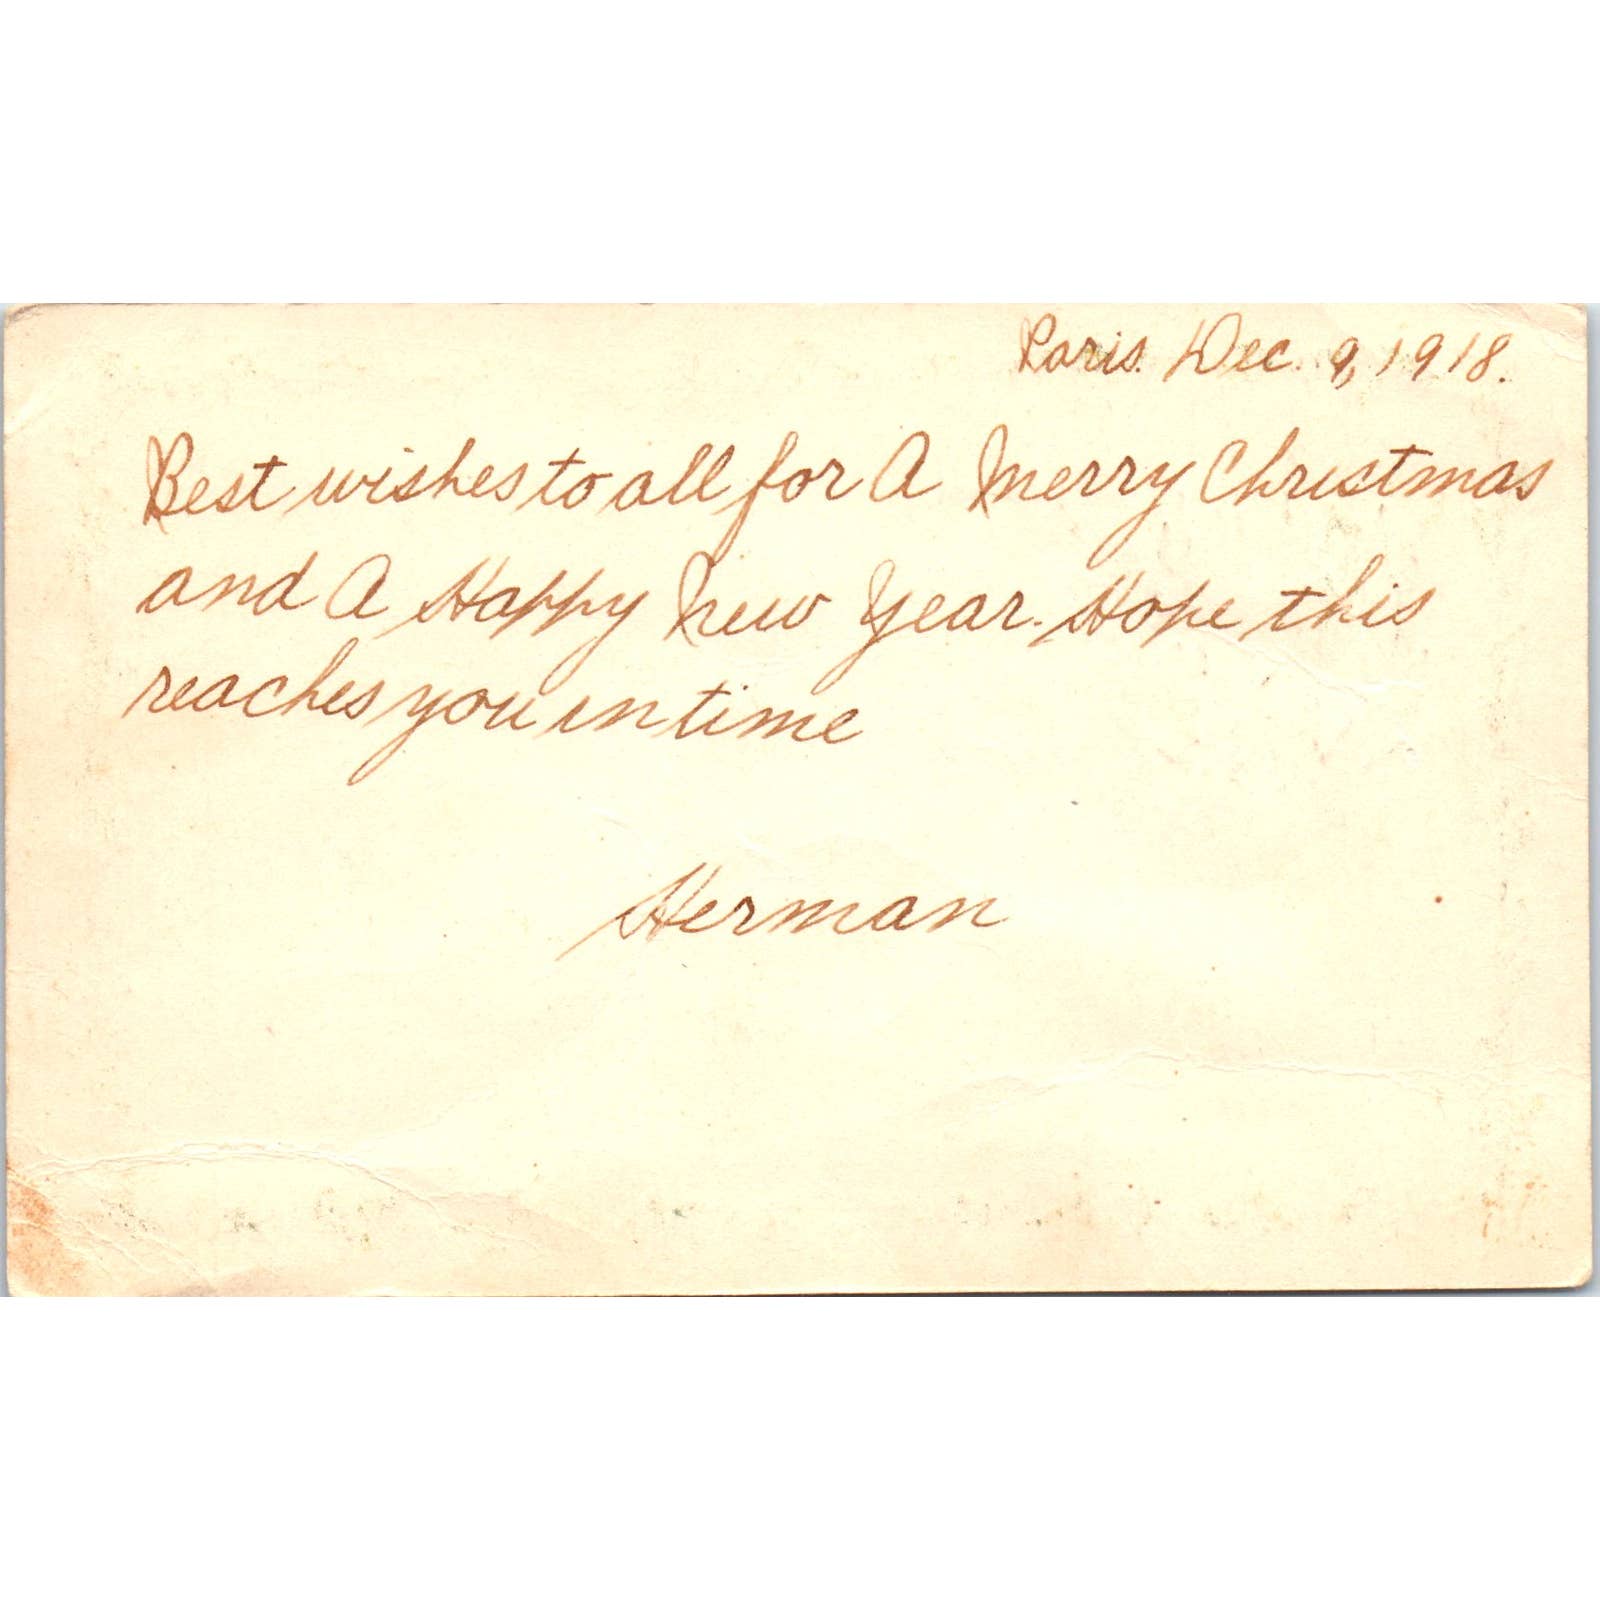 Paris. Dec. 9, 1918.
Best wishes to all for A Merry Christmas
and A Happy New Year. Hope this
reaches you in time
Herman